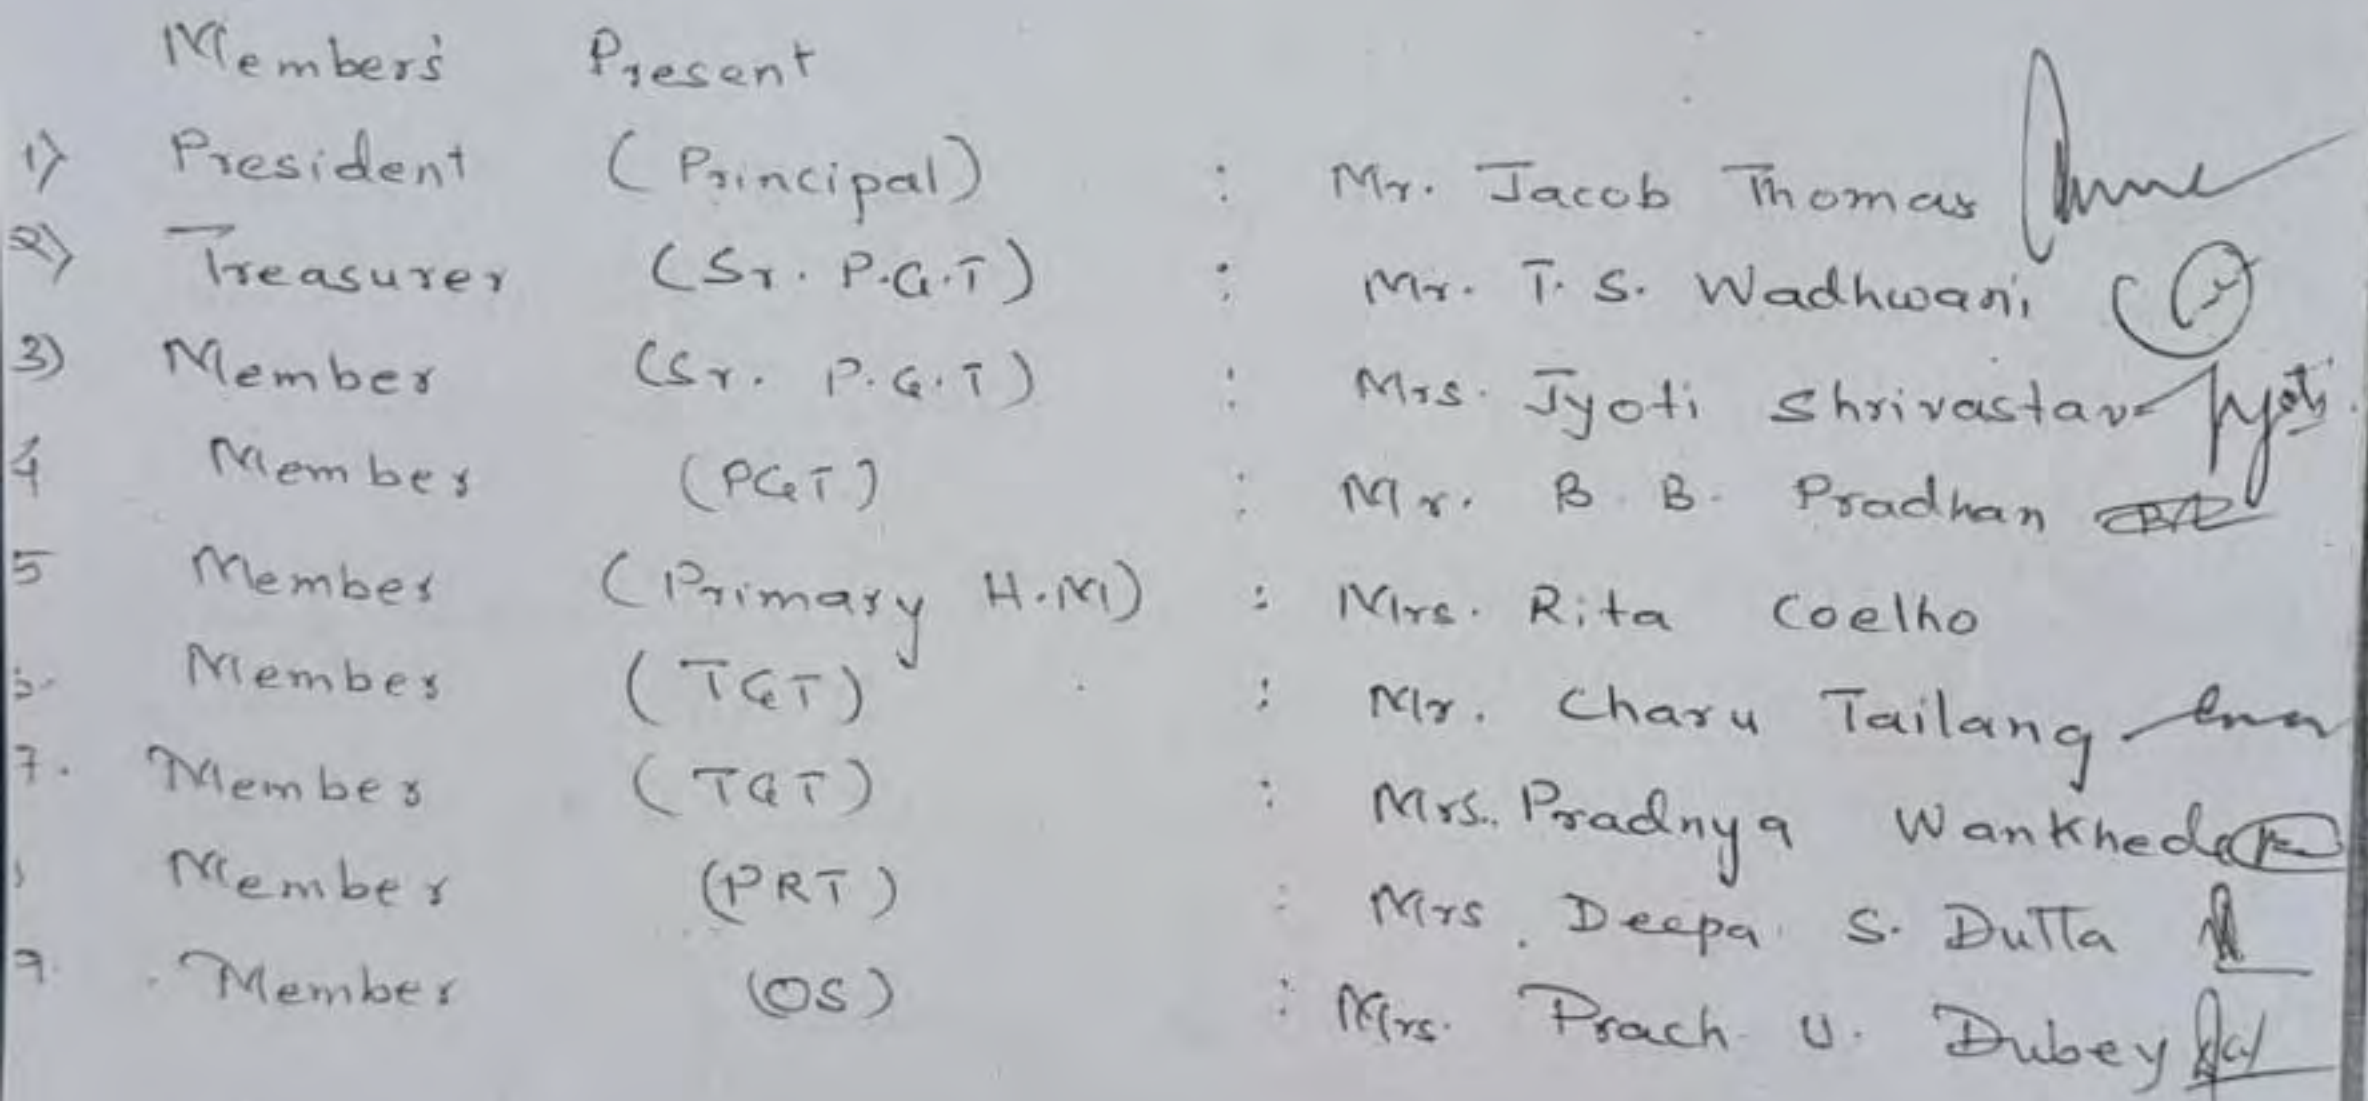 Member's Present
1) President (Principal) : Mr. Jacob Thomas
2) Treasurer (Sr. P.G.T) : Mr. T. S. Wadhwani
3) Member (Sr. P.G.T) : Mrs. Jyoti Shrivastava Jyoti
4 Member (PGT) : Mr. B. B. Pradhan
5 Member (Primary H.M) : Mrs. Rita Coelho
Member (TGT) : Mr. Charu Tailang
7. Member (TGT) : Mrs. Pradnya Wankhede
Member (PRT) : Mrs. Deepa S. Dutta
9. Member (OS) : Mrs. Prach U. Dubey